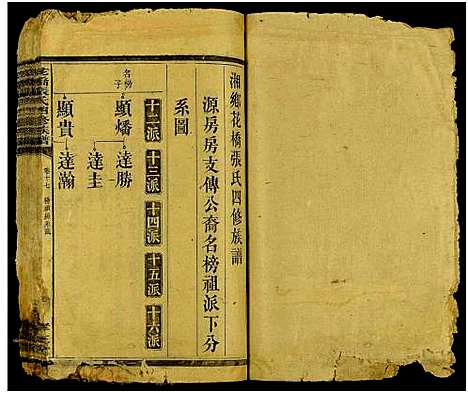 湘鄉花橋張氏四修族譜
源房房支傳公裔名榜祖派下分
系圖
十二派 十三派 十四派 十五派 十六派
名榜子
顯燔 達勝
達圭
顯貴 達瀚
卷十七